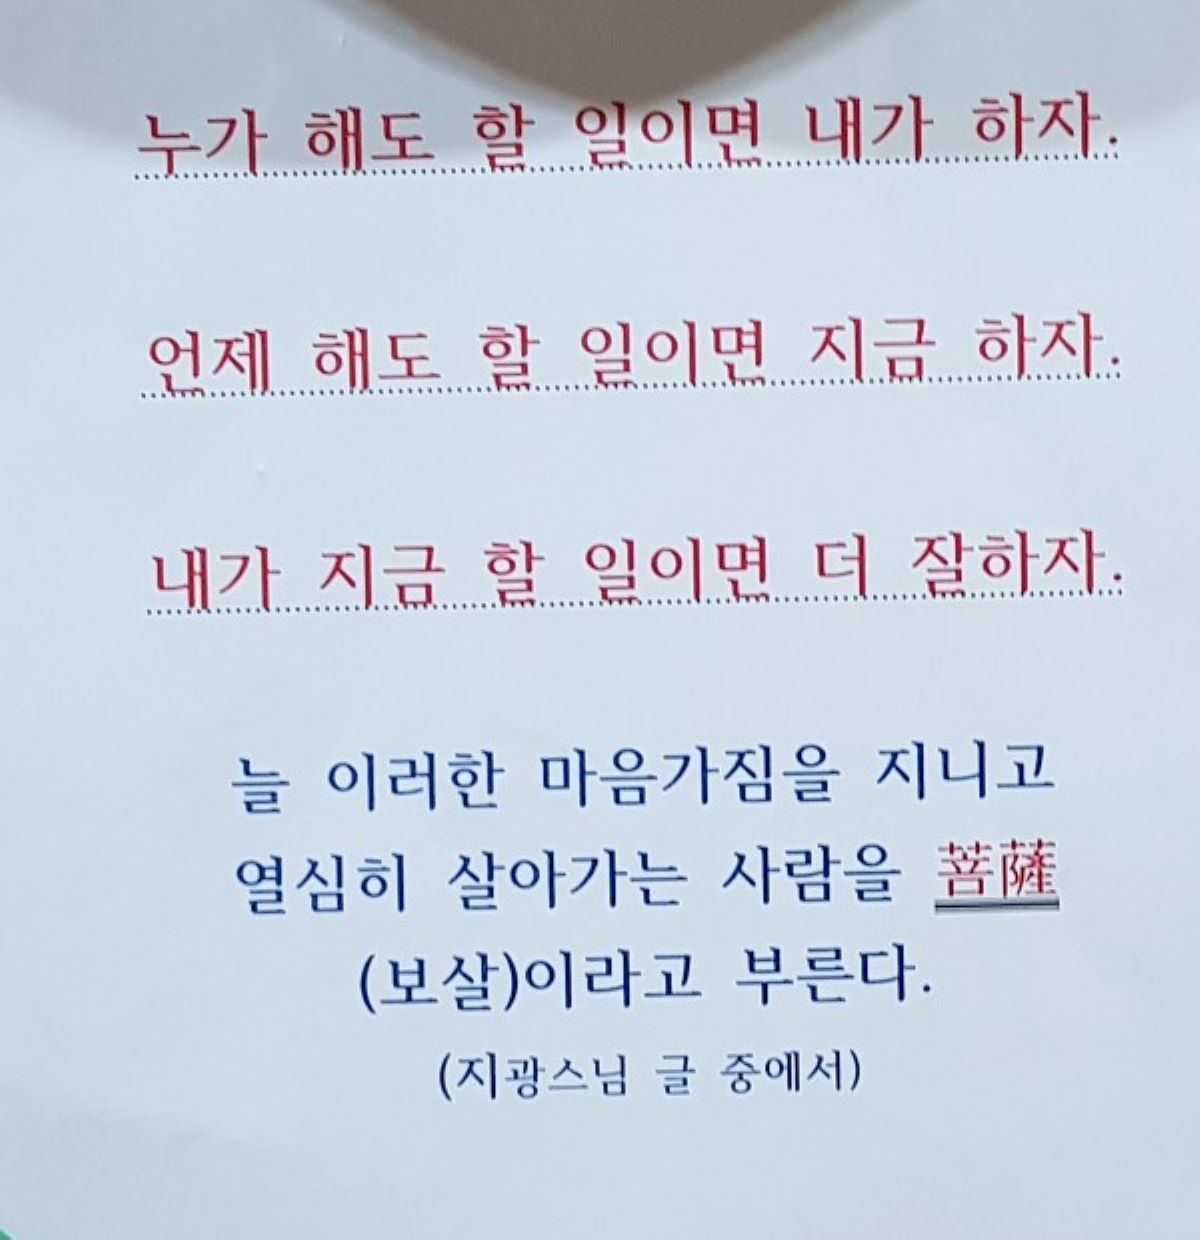 누가 해도 할 일이면 내가 하자.
언제 해도 할 일이면 지금 하자.
내가 지금 할 일이면 더 잘하자.
늘 이러한 마음가짐을 지니고
열심히 살아가는 사람을 菩薩
(보살)이라고 부른다.
(지광스님 글 중에서)